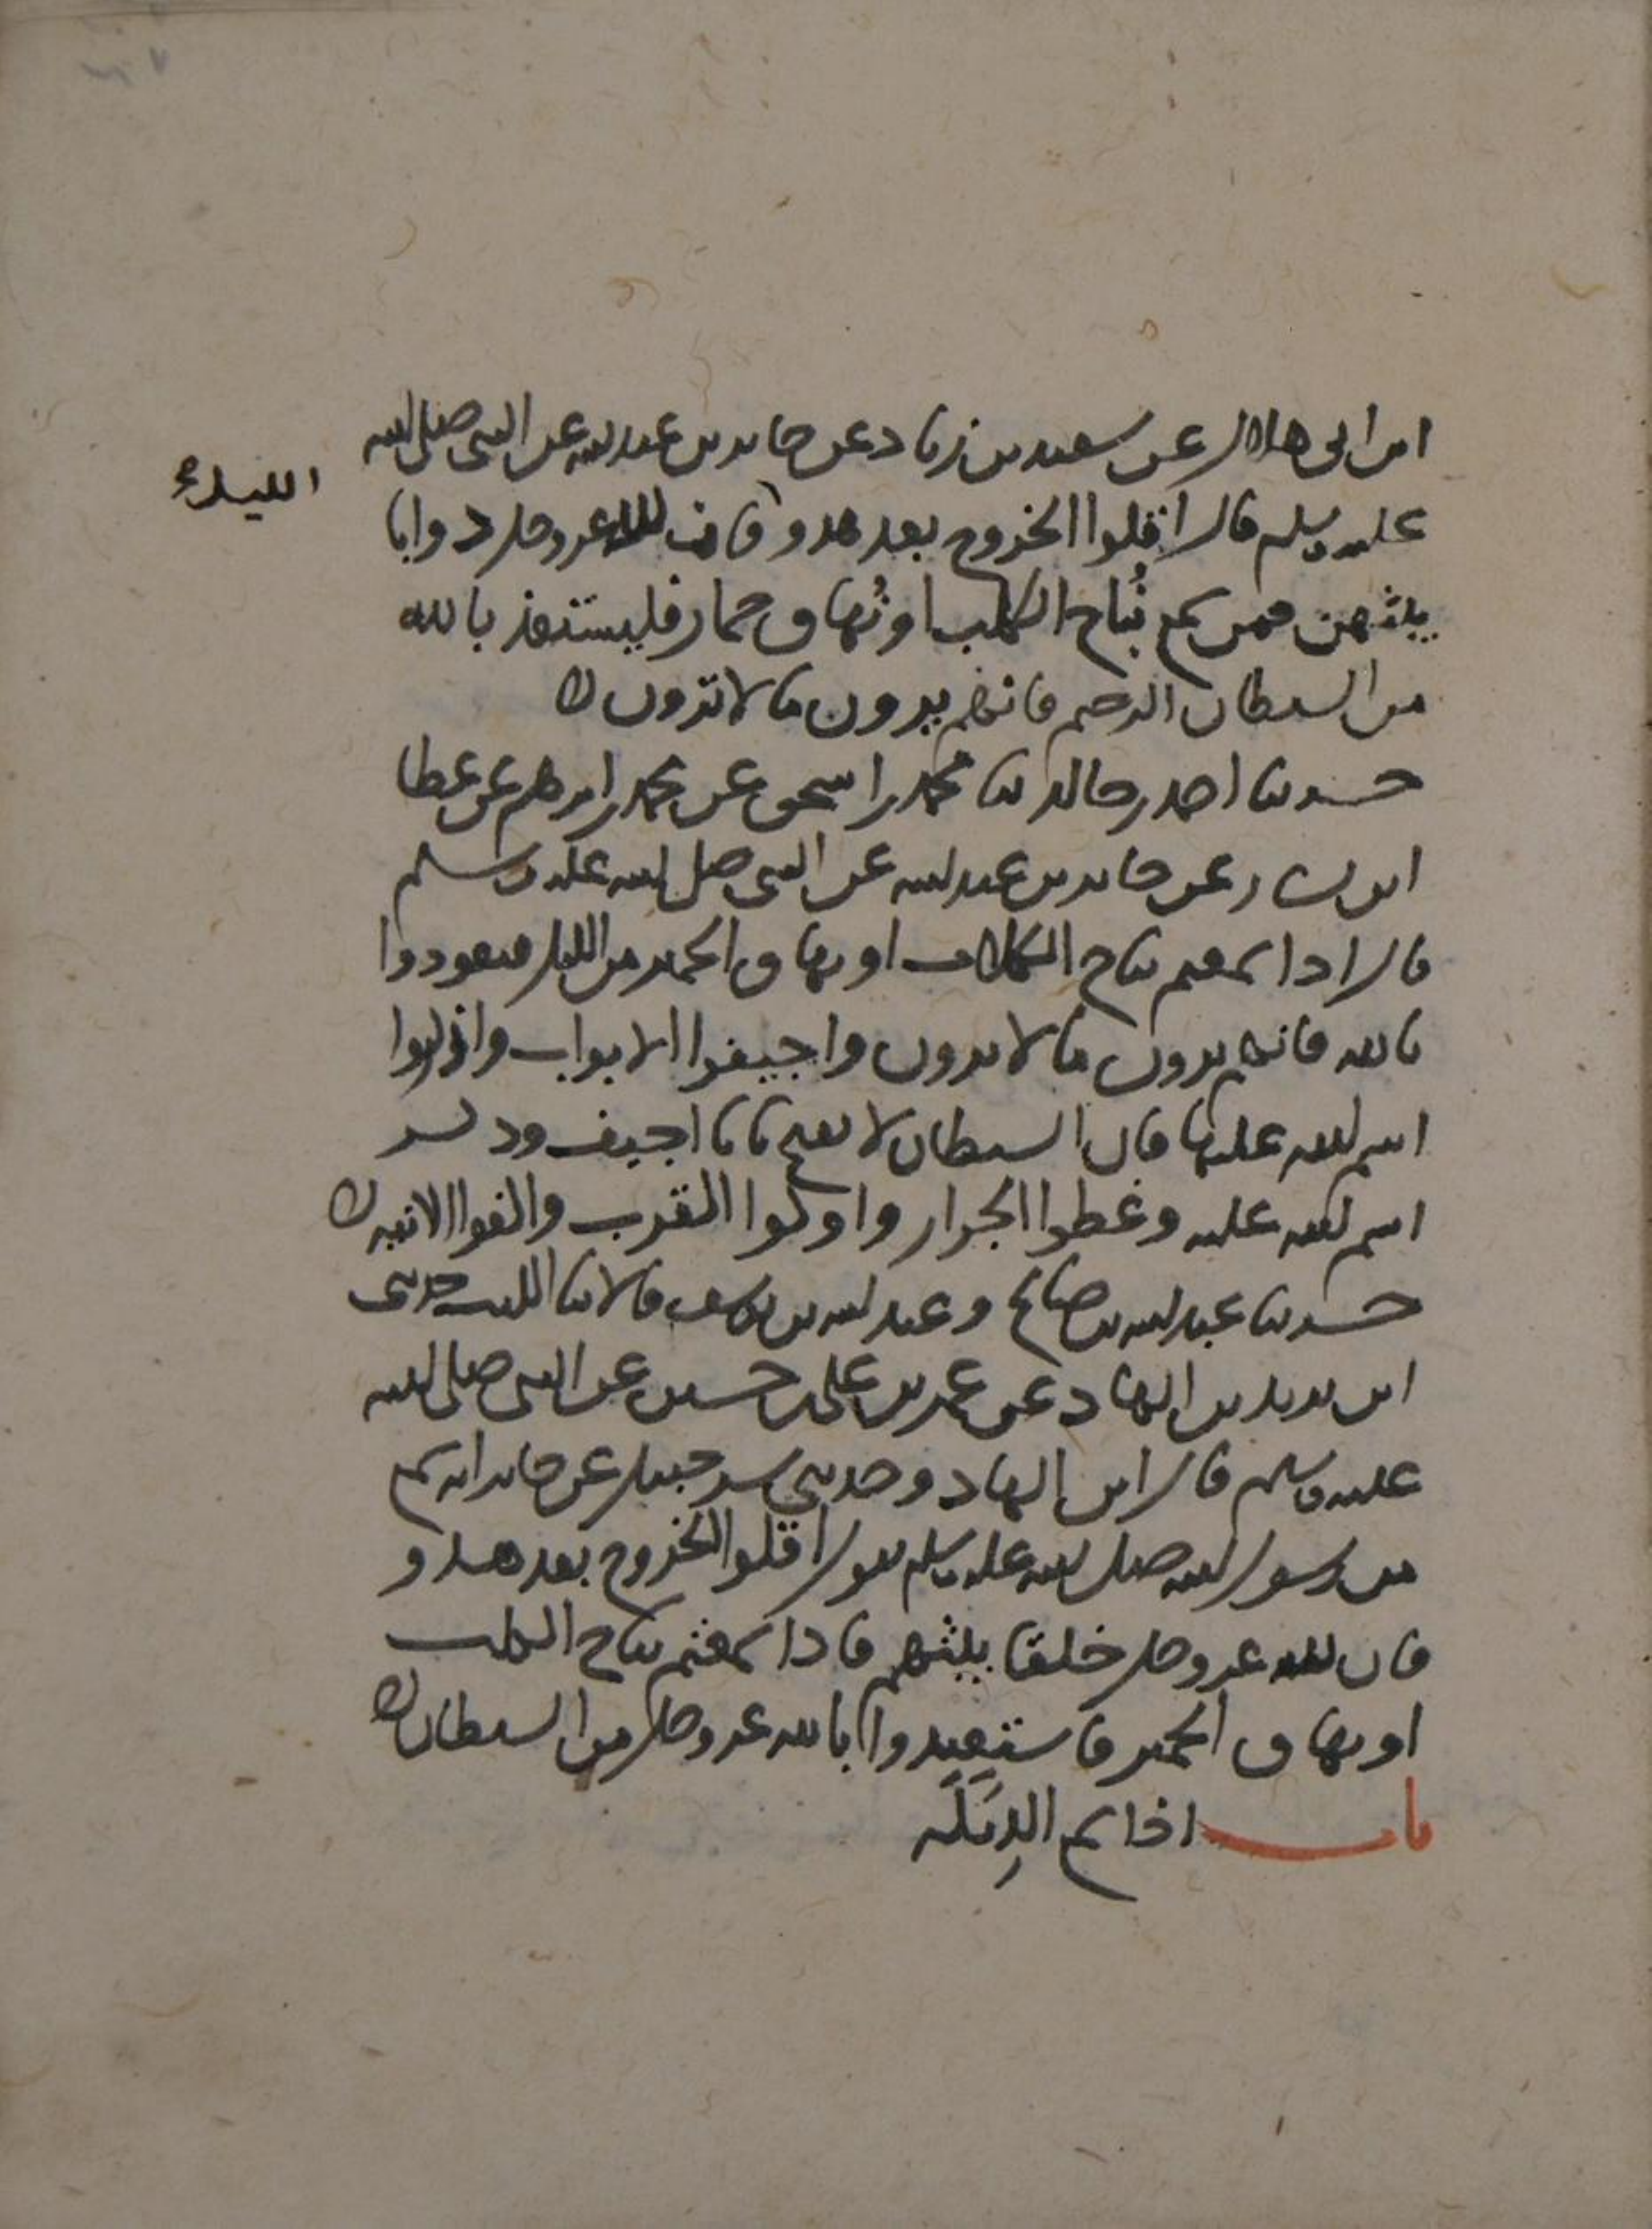 ابن ابي هلال عن سعيد بن زياد عن جابر بن عبد الله عن النبي صلى الله
الليل
عليه وسلم قال اقلوا الخروج بعد هدو فان لله عز وجل دوابا
يبثهن فمن سمع نُباح الكلب او نُهاق حمار فليستعذ بالله
من الشيطان الرجيم فانهم يرون ما لا ترون
حدثنا احمد بن خالد ثنا محمد بن اسحق عن محمد بن ابرهيم عن عطا
ابن يسار عن جابر بن عبد الله عن النبي صلى الله عليه وسلم
قال اذا سمعتم نباح الكلاب او نهاق الحمير من الليل فتعوذوا
بالله فانهم يرون ما لا ترون واجيفوا الابواب واذكروا
اسم الله عليها فان الشيطان لا يفتح بابا اجيف وذكر
اسم الله عليه وغطوا الجرار واوكوا القرب واكفوا الانيه
حدثنا عبد الله بن صالح وعبد الله بن يوسف قالا ثنا الليث حدثني
ابن يزيد بن الهاد عن عمر بن علي بن حسين عن النبي صلى الله
عليه وسلم قال ابن الهاد وحدثني شرحبيل عن جابر انه سمع
من رسول الله صلى الله عليه وسلم يقول اقلوا الخروج بعد هدو
فان لله عز وجل خلقا يبثهم فاذا سمعتم نباح الكلب
او نهاق الحمير فاستعيذوا بالله عز وجل من الشيطان
باب اذا سمع الدِيَكَه